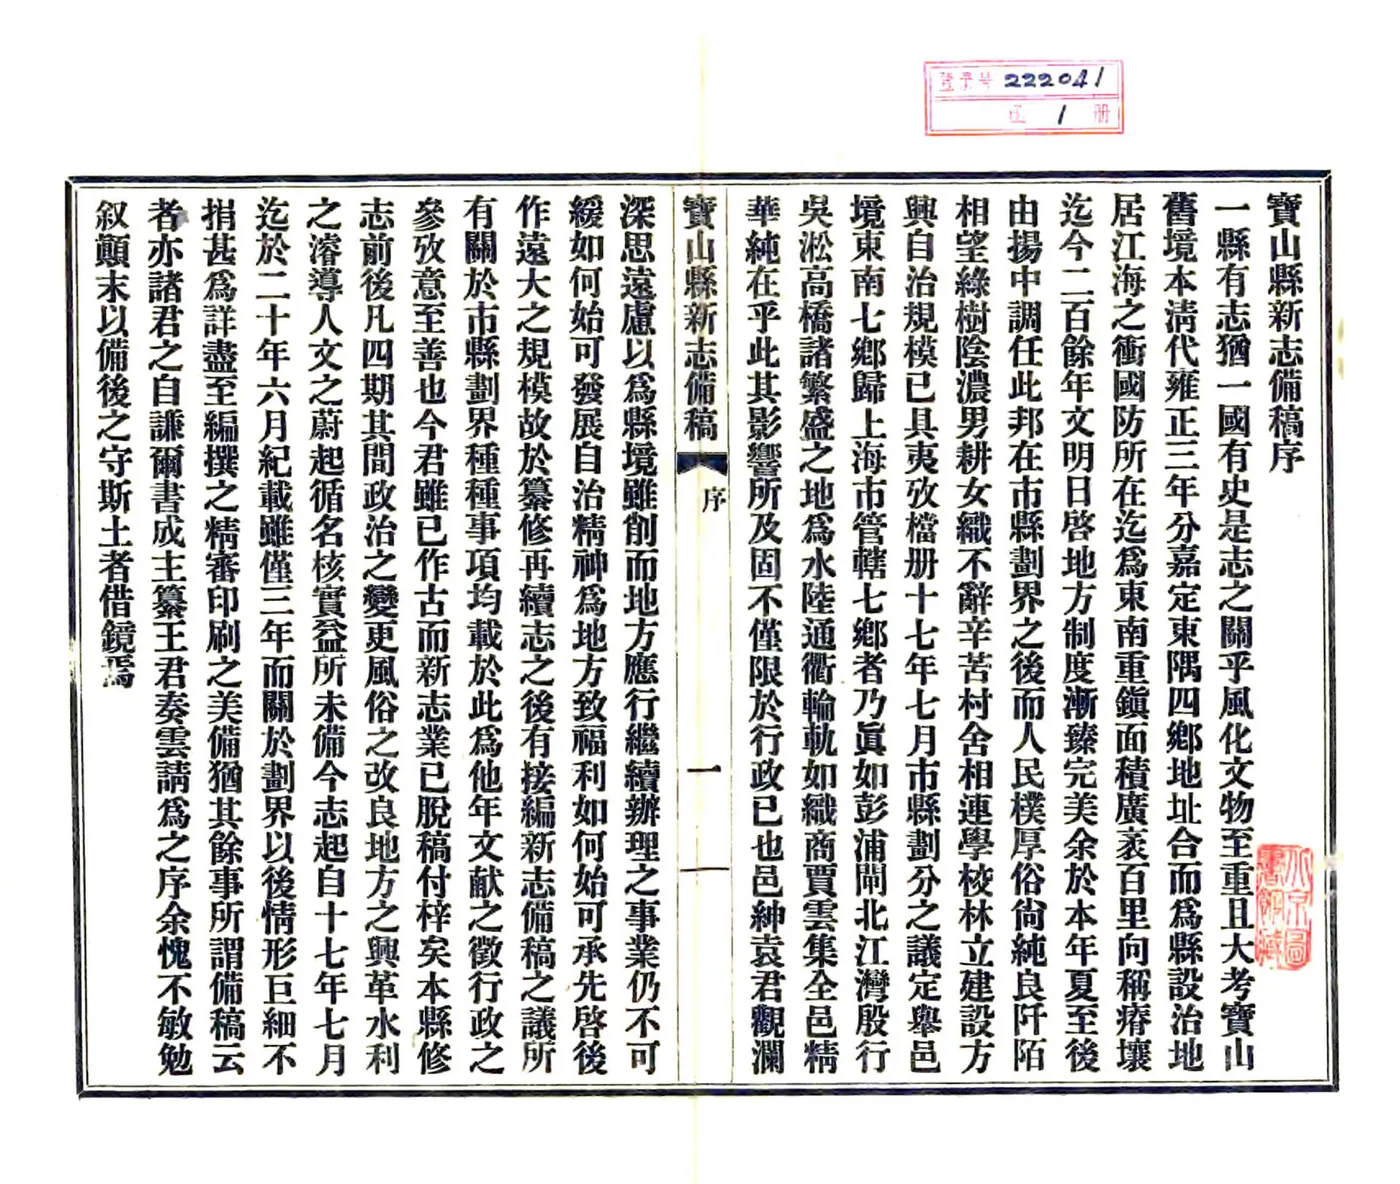 登录号 222041
1 册
寶山縣新志備稿序
一縣有志猶一國有史是志之關乎風化文物至重且大考寶山
舊境本清代雍正三年分嘉定東隅四鄉地址合而爲縣設治地
居江海之衝國防所在迄爲東南重鎮面積廣袤百里向稱瘠壤
迄今二百餘年文明日啓地方制度漸臻完美余於本年夏至後
由揚中調任此邦在市縣劃界之後而人民樸厚俗尙純良阡陌
相望綠樹陰濃男耕女織不辭辛苦村舍相連學校林立建設方
興自治規模已具夷攷檔册十七年七月市縣劃分之議定舉邑
境東南七鄉歸上海市管轄七鄉者乃眞如彭浦閘北江灣殷行
吳淞高橋諸繁盛之地爲水陸通衢輪軌如織商賈雲集全邑精
華純在乎此其影響所及固不僅限於行政已也邑紳袁君觀瀾
寶山縣新志備稿 序 一
深思遠慮以爲縣境雖削而地方應行繼續辦理之事業仍不可
緩如何始可發展自治精神爲地方致福利如何始可承先啓後
作遠大之規模故於纂修再續志之後有接編新志備稿之議所
有關於市縣劃界種種事項均載於此爲他年文献之徵行政之
參攷意至善也今君雖已作古而新志業已脫稿付梓矣本縣修
志前後凡四期其間政治之變更風俗之改良地方之興革水利
之濬導人文之蔚起循名核實益所未備今志起自十七年七月
迄於二十年六月紀載雖僅三年而關於劃界以後情形巨細不
捐甚爲詳盡至編撰之精審印刷之美備猶其餘事所謂備稿云
者亦諸君之自謙爾書成主纂王君奏雲請爲之序余愧不敏勉
叙顚末以備後之守斯土者借鏡焉
北京圖
書館藏